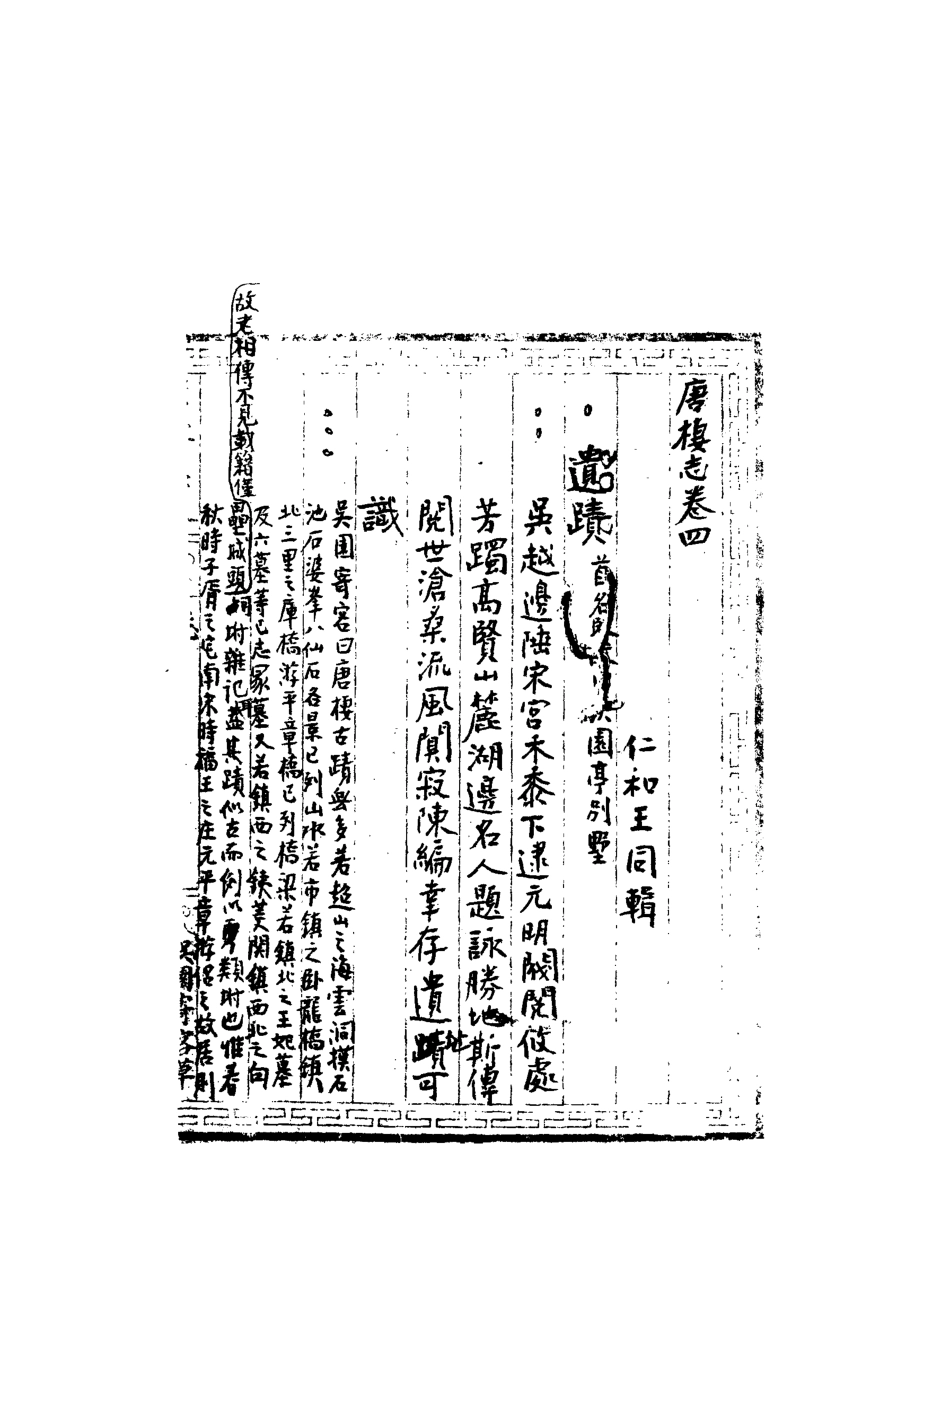 唐棲志卷四
仁和王同輯
遺蹟
園亭別墅
吳越邊陲宋宮禾黍下逮元明閥閱攸處
芳躅高賢山麓湖邊名人題詠勝地斯傳
閱世滄桑流風闃寂陳編幸存遺蹟可
址
識
吳園寄客曰唐棲古蹟無多若超山之海雲洞摸石
池石婆拳八仙石各景已列山水若市鎮之卧龍橋鎮
北三里之庫橋游平章橋已列橋梁若鎮北之王妃墓
及六墓等已志冢墓又若鎮西之錢姜関鎮西北之向
故老相傳不見載籍僅
壘城頭祠附雜記盖其蹟似古而例以事類附也惟春
秋時子胥之宅南宋時福王之庄元平章游侶之故居則
吳園寄客草